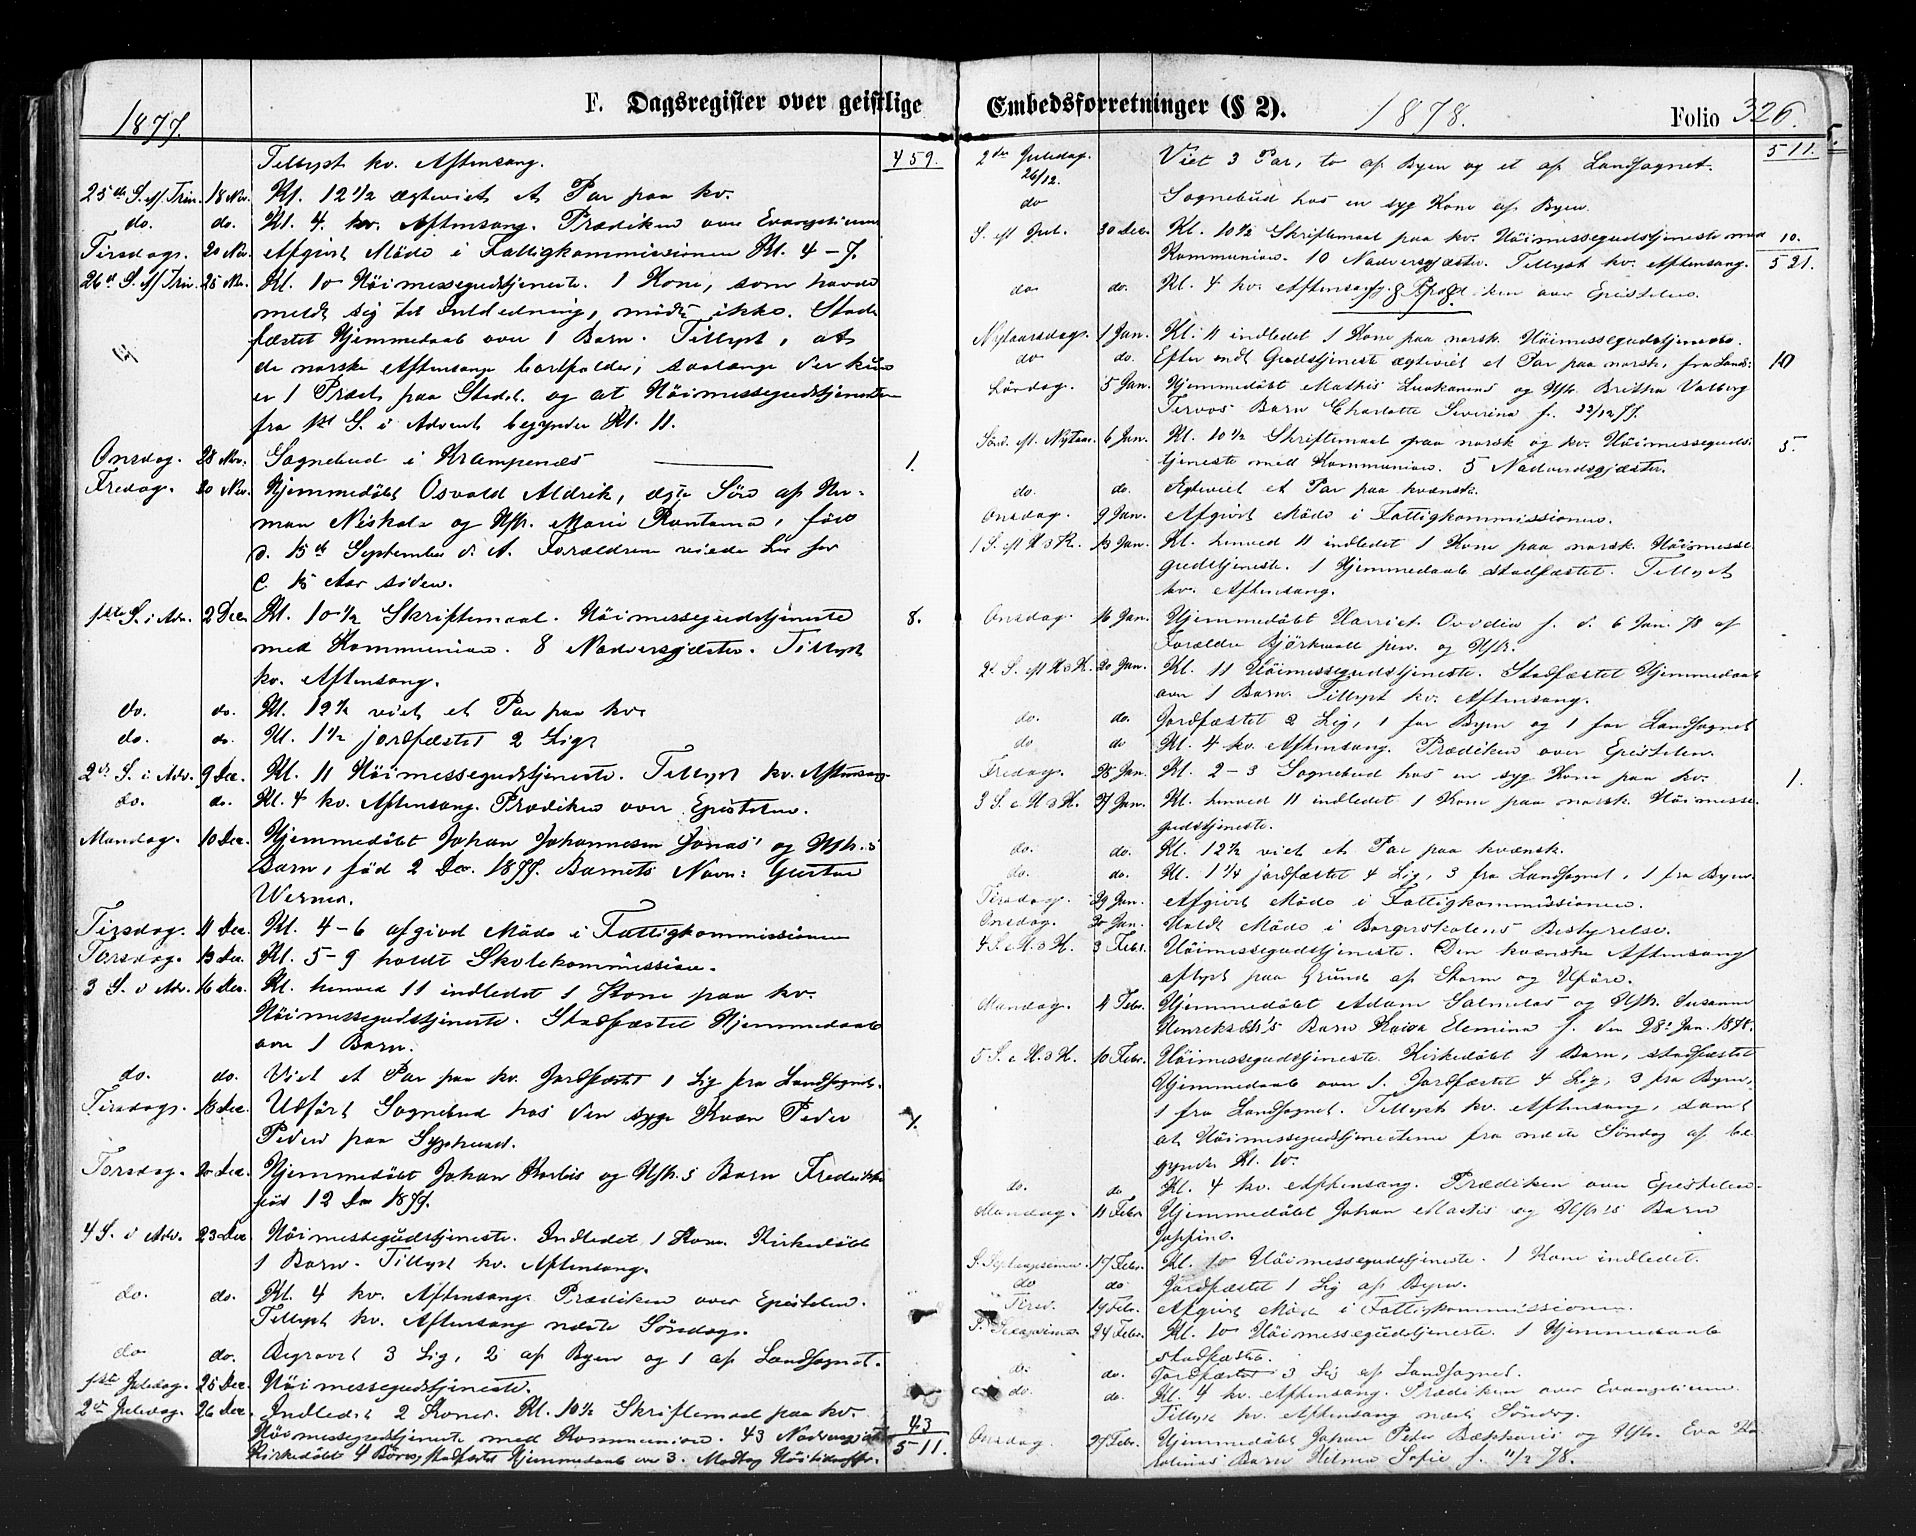 1877.
F. Dagsregister over geistlige
459.
Tillyst kv. Aftensang.
25de S. ef. Trin. 18 Nov. Kl. 12 1/2 ægteviet et Par paa kv.
do. do. Kl. 4. kv. Aftensang. Prædiken over Evangelium
Tirsdag. 20 Nov. Afgivet Møde i Fattigkommissionen Kl. 4-7.
26d S. ef Trin. 25 Nov. Kl. 10 Høimessegudstjeneste. 1 Kone, som havde
meldt sig til Indledning, mødte ikke. Stad
fæstet Hjemmedaab over 1 Barn. Tillyst, at
de norske Aftensange bortfalder, saalænge der kun
er 1 Præst paa Stedet og at Høimessegudstjenesten
fra 1ste S. i Advent begynder Kl. 11.
Onsdag. 28 Nov. Sognebud i Krampenæs 1.
Fredag. 30 Nov. Hjemmedøbt Osvald Aldrik, ægte Søn af Her-
man Niskala og Hstr. Marie Rantama, født
d. 15de September d. A. Forældrene viede her for
c. 15 Aar siden.
1ste S. i Adv. 2 Dec. Kl. 10 1/2 Skriftemaal. Høimessegudstjeneste 8.
med Kommunion. 8 Nadvergjæster. Tillyst
kv. Aftensang.
do. do. Kl. 12 1/2 viet et Par paa kv.
do. do. Kl. 1 1/2 jordfæstet 2 Lig.
2den S. i Adv. 9 Dec. Kl. 11 Høimessegudstjeneste. Tillyst kv. Aftensang
do. do. Kl. 4 kv. Aftensang. Prædiken over Epistelen.
Mandag. 10 Dec. Hjemmedøbt Johan Johannesen Jonas' og Hstr.s
Barn, fød 2 Dec. 1877. Barnets Navn: Gustav
Werner.
Tirsdag. 11 Dec. Kl. 4-6 afgivet Møde i Fattigkommissionen
Torsdag. 13 Dec. Kl. 5-9 holdt Skolekommission.
3 S. i Adv. 16 Dec. Kl. henved 11 indledet 1 Kone paa kv.
Høimessegudstjeneste. Stadfæstet Hjemmedaab
over 1 Barn.
do. do. Viet et Par paa kv. Jordfæstet 1 Lig fra Landsognet.
Tirsdag. 18 Dec. Udført Sognebud hos den syge Kvæn Peder 1.
Peders paa Sygehuset.
Torsdag. 20 Dec. Hjemmedøbt Johan Korbis og Hstr.s Barn Fredrikke
fød 12 Dec 1877.
4 S. i Adv. 23 Dec. Høimessegudstjeneste. Indledet 1 Kone. Kirkedøbt
1 Barn. Tillyst kv. Aftensang.
do. do. Kl. 4 kv. Aftensang. Prædiken over Epistelen.
Tillyst kv. Aftensang næste Søndag.
do do. Begravet 3 Lig, 2 af Byen og 1 af Landsognet.
1ste Juledag. 25 Dec. Høimessegudstjeneste.
2den Juledag. 26 Dec. Indledet 2 Koner. Kl. 10 1/2 Skriftemaal paa kv.
Høimessegudstjeneste med Kommunion. 43 Nadvergjæster 43
Kirkedøbt 4 Børn, stadfæstet Hjemmedaab over 3. Modtog Høitidsoffer. 511.
Embedsforretninger (§ 2).
1878.
Folio 326.
511.
2den Juledag. 26/12. Viet 3 Par, to af Byen og et af Landsognet.
do Sognebud hos en syg Kone af Byen.
S. eft Jul. 30 Dec. Kl. 10 1/2 Skriftemaal paa kv. Høimessegudstjeneste med 10.
Kommunion. 10 Nadvergjæster. Tillyst kv. Aftensang. 521.
do. do. Kl. 4 kv. Aftensang. Prædiken over Epistelen.
1878.
Nytaarsdag. 1 Jan. Kl. 11 indledet 1 Kone paa norsk. Høimessegudstjeneste.
do do. Efter endt Gudstjeneste ægteviet et Par paa norsk, fra Lands.
Lördag. 5 Jan. Hjemmedøbt Mathis Luokanens og Hstr. Britha Valborg
Tervos Barn Charlotte Severina f. 23/12 77.
Sönd. eft. Nytaar. 6 Jan. Kl. 10 1/2 Skriftemaal paa norsk og kv. Høimesseguds- 5.
tjeneste med Kommunion. 5 Nadverdsgjæster.
do. do. Egteviet et Par paa kvænsk.
Onsdag. 9 Jan. Afgivet Møde i Fattigkommissionen.
1 S. eft H 3 K. 13 Jan. Kl. henved 11 indledet 1 Kone paa norsk. Høimesse-
gudstjeneste. 1 Hjemmedaab stadfæstet. Tillyst
kv. Aftensang.
Onsdag. 16 Jan. Hjemmedøbt Harriet Ovidia f. d. 6 Jan. 78 af
Forældre Björkwall jun. og Hstr.
2d S. eft H 3 K. 20 Jan. Kl. 11 Høimessegudstjeneste. Stadfæstet Hjemmedaab
over 1 Barn. Tillyst kv. Aftensang.
do. do. Jordfæstet 2 Lig, 1 for Byen og 1 for Landsognet
do do Kl. 4 kv. Aftensang. Prædiken over Epistelen.
Fredag. 25 Jan. Kl. 2-3 Sognebud hos en syg Kone paa kv. 1.
3 S. e H 3 K. 27 Jan. Kl. henved 11 indledet 1 Kone paa norsk. Høimesse-
gudstjeneste.
do. do. Kl. 12 1/2 viet et Par paa kvænsk.
do. do. Kl. 1 1/4 jordfæstet 4 Lig, 3 fra Landsognet, 1 fra Byen.
Tirsdag. 29 Jan. Afgivet Møde i Fattigkommissionen.
Onsdag. 30 Jan. Holdt Møde i Borgerskolens Bestyrelse.
4 S. e H. 3 K. 3 Febr. Høimessegudstjeneste. Den kvænske Aftensang
aflyst paa Grund af Storm og Uføre.
Mandag. 4 Febr. Hjemmedøbt Adam Salmelas og Hstr. Susanne
Henriksdtr's Barn Kaisa Elemina f. den 28de Jan. 1878.
5 S. e H. 3 K. 10 Febr. Høimessegudstjeneste. Kirkedøbt 1 Barn, stadfæstet
Hjemmedaab over 1. Jordfæstet 4 Lig, 3 fra Byen,
1 fra Landsognet. Tillyst kv. Aftensang, samt
at Høimessegudstjenesterne fra næste Søndag af be-
gynder Kl. 10.
do. do Kl. 4 kv. Aftensang. Prædiken over Epistelen.
Mandag. 11 Febr. Hjemmedøbt Johan Mathis og Hstr's Barn
Josfine.
S. Septuagesima. 17 Febr. Kl. 10 Høimessegudstjeneste. 1 Kone indledet.
do do Jordfæstet 1 Lig af Byen.
Tirsd. 19 Febr. Afgivet Møde i Fattigkommissionen.
S. Sexagesima 24 Febr. Kl. 10 Høimessegudstjeneste. 1 Hjemmedaab
stadfæstet.
do. do. Jordfæstet 3 Lig af Landsognet.
do. do Kl. 4 kv. Aftensang. Prædiken over Evangelium.
Tillyst kv. Aftensang næste Søndag.
Onsdag 27 Febr. Hjemmedøbt Johan Peder Bækkaris og Hstr. Eva Ka
Barn Hilma Sofie f. 11/2 78.